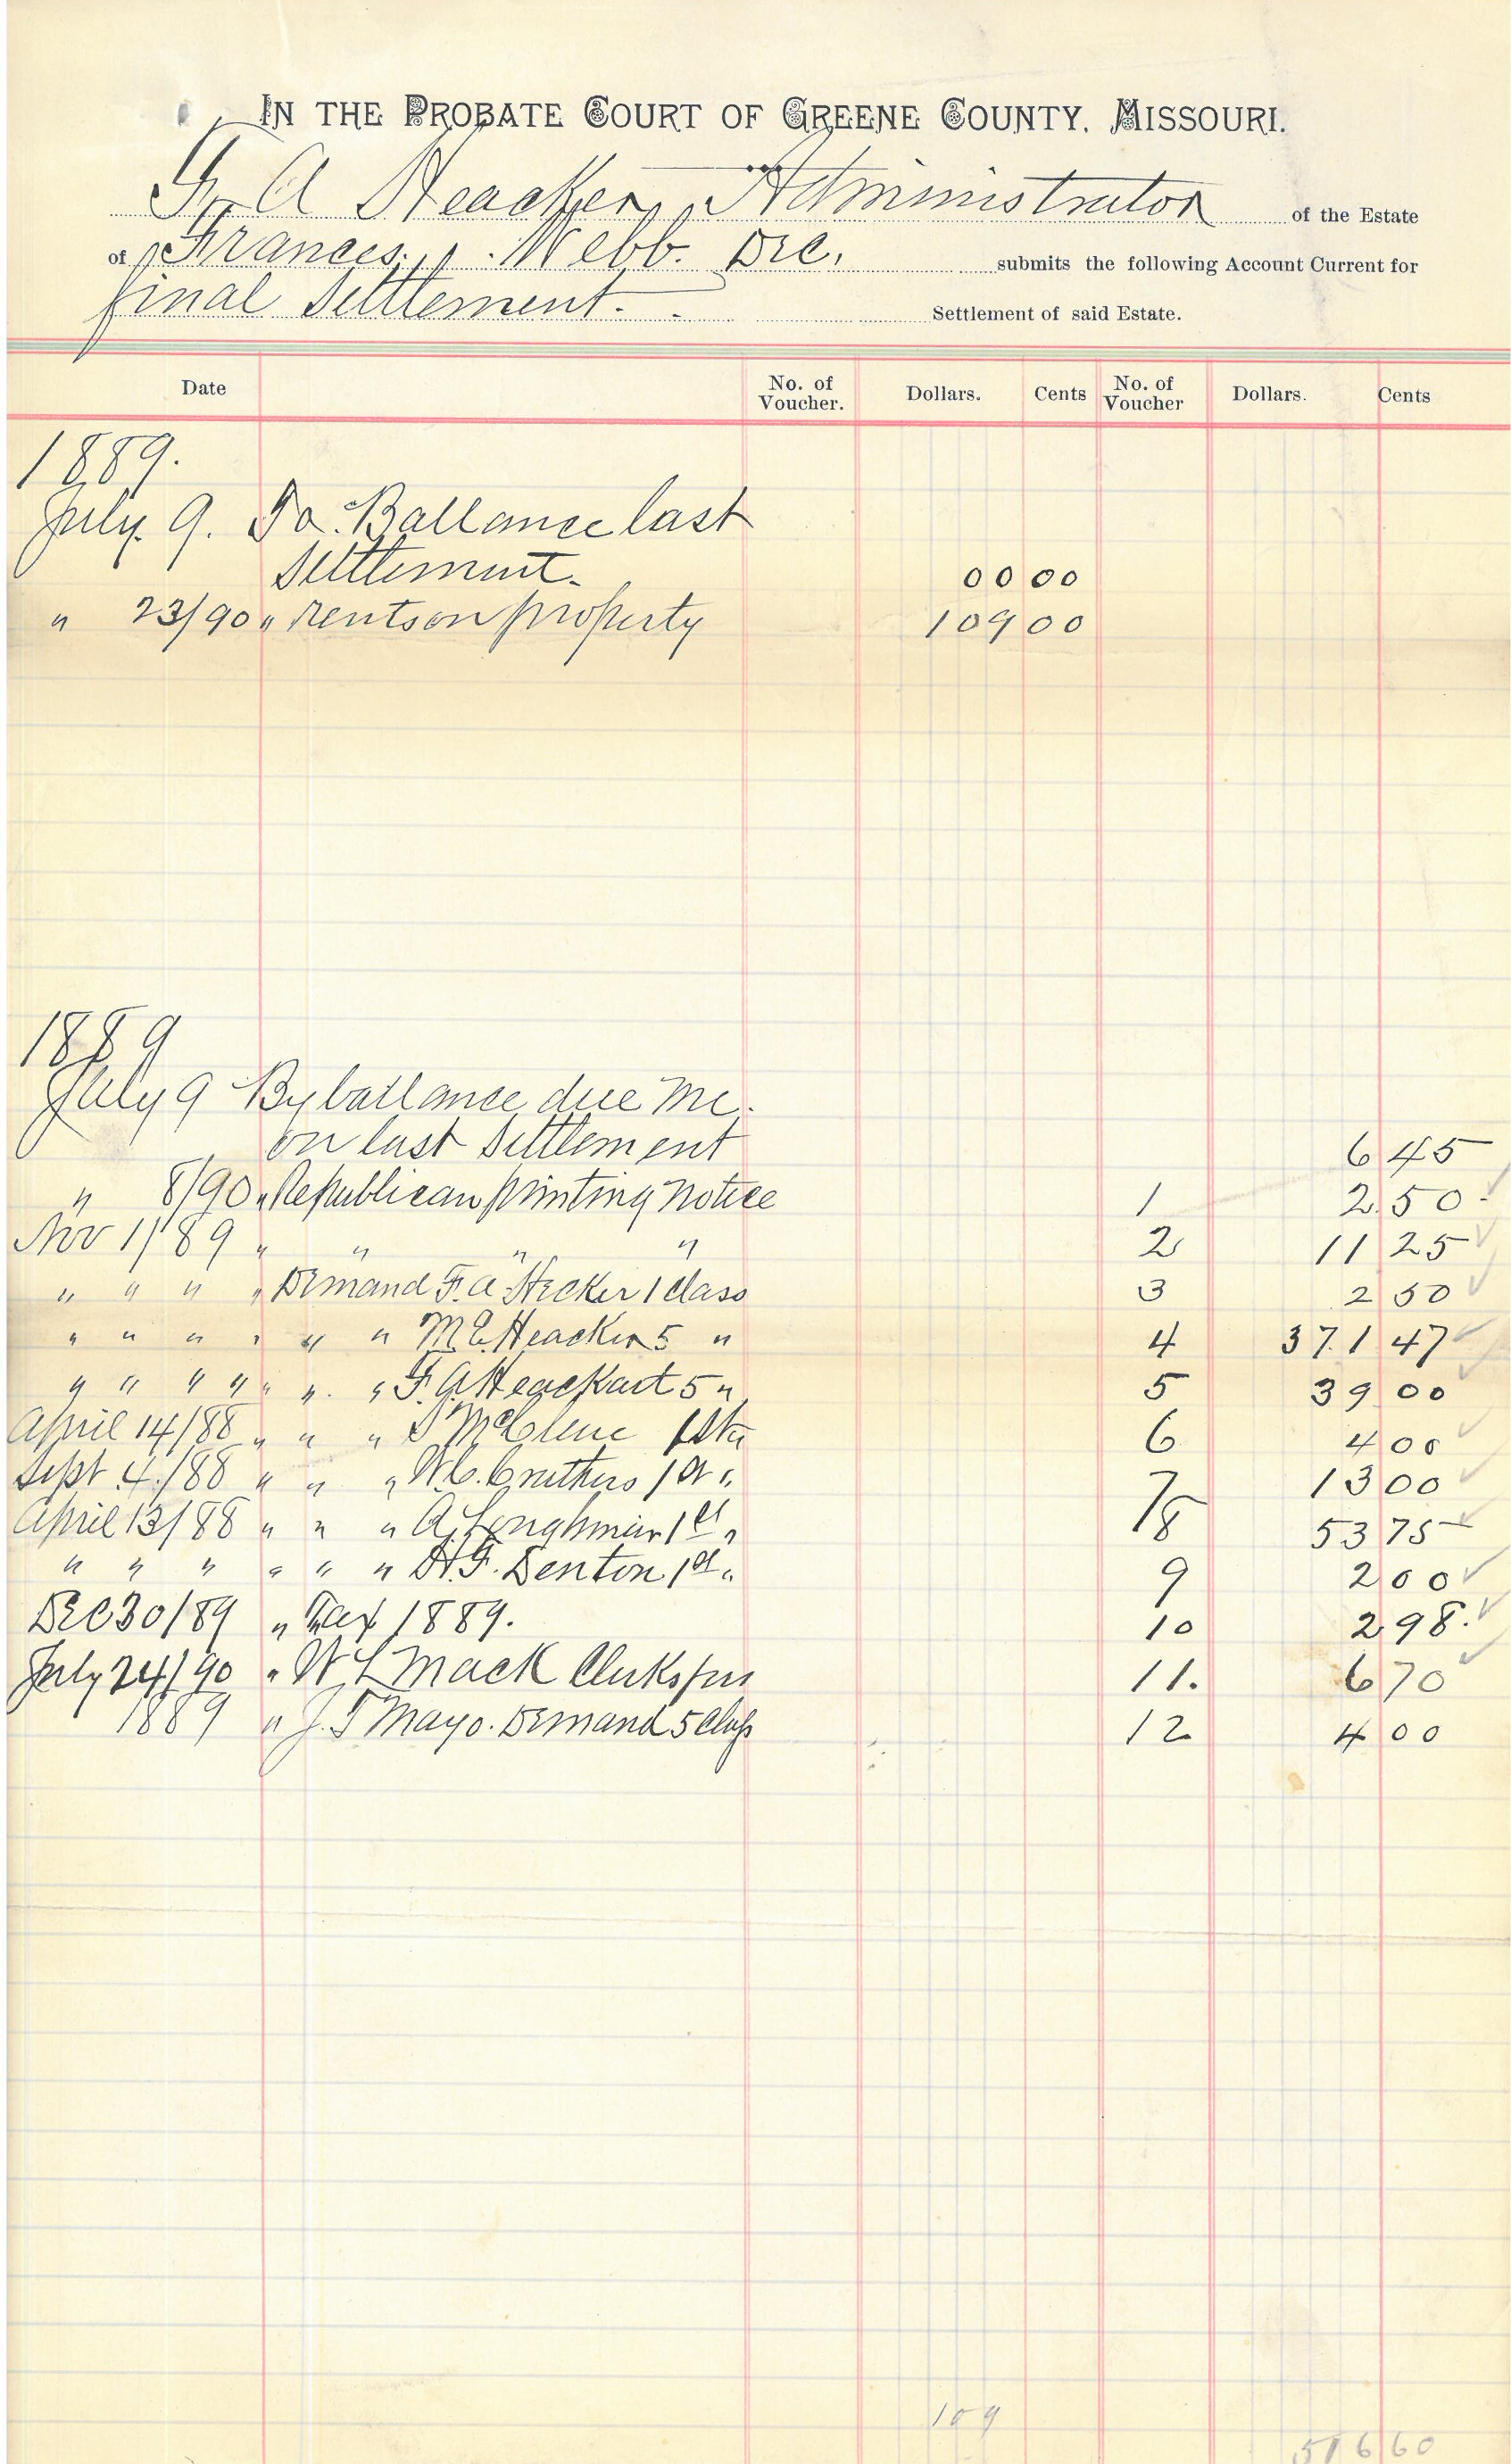 IN THE PROBATE COURT OF GREENE COUNTY, MISSOURI.
F. A Heacker, Administrator of the Estate
of Frances Webb. Dec. submits the following Account Current for
final Settlement. Settlement of said Estate.
Date No. of Voucher. Dollars. Cents No. of Voucher Dollars. Cents
1889.
July. 9. To Ballance last
Settlement. 00 00
" 23/90 " rents on property 109 00
1889
July 9 By ballance due me.
on last Settlement 6 45
" 8/90 " Republican printing notice 1 2.50
Nov 1/89 " " " " 2 11 25
" " " " Demand F. A Hecker 1 class 3 2 50
" " " " " " M.E. Heacker 5 " 4 371 47
" " " " " " " F. A. 5 " 5 39 00
April 14/88 " " " McClure 1st " 6 4 00
Sept 4/88 " " " W.C. Cruthers 1st " 7 13 00
April 13/88 " " " A. 1st " 8 53 75
" " " " " " H.F. Denton 1st " 9 2 00
Dec 30/89 " Tax 1889. 10 2 98.
July 24/90 " W L Mack Clerks fees 11. 6 70
1889 " J. T Mayo. Demand 5 Class 12 4 00
109
516 60